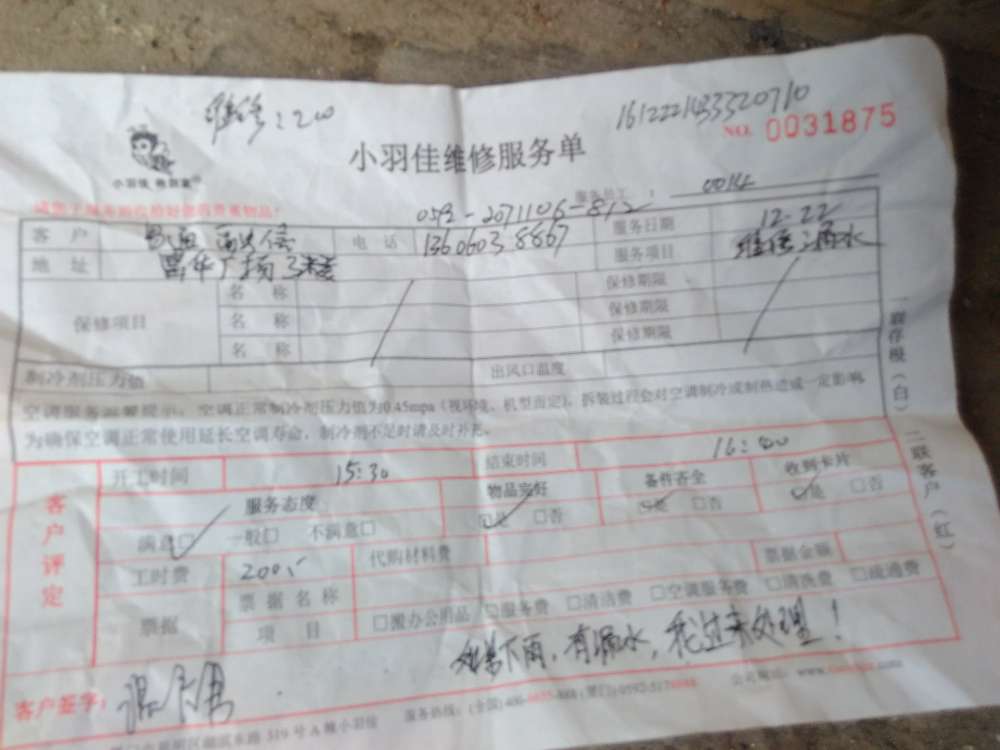 维修：200
161222143320710
NO. 0031875
小羽佳维修服务单
小羽佳
服务员工： 0014
0592-2071106-812
客 户 电 话 13606038867 服务日期 12.22
地 址 富华广场3楼 服务项目 维修：漏水
保修项目 名 称 保修期限
名 称 保修期限
名 称 保修期限
制冷剂压力值 出风口温度
空调服务温馨提示：空调正常制冷剂压力值为0.45mpa（视环境、机型而定），拆装过程会对空调制冷或制热造成一定影响
为确保空调正常使用延长空调寿命，制冷剂不足时请及时补充。
一联存根（白）
二联客户（红）
客户评定
开工时间 15:30 结束时间 16:00
服务态度 物品完好 备件齐全 收到卡片
满意□ 一般□ 不满意□ □是 □否 □是 □否 □是 □否
工时费 200 代购材料费 票据金额
票据 票据名称
项 目 □搬办公用品 □服务费 □清洁费 □空调服务费 □清洗费 □疏通费
如若下雨，有漏水，我过来处理！
客户签字：
319号A栋小羽佳 服务热线：(全国)400
公司网址：www.